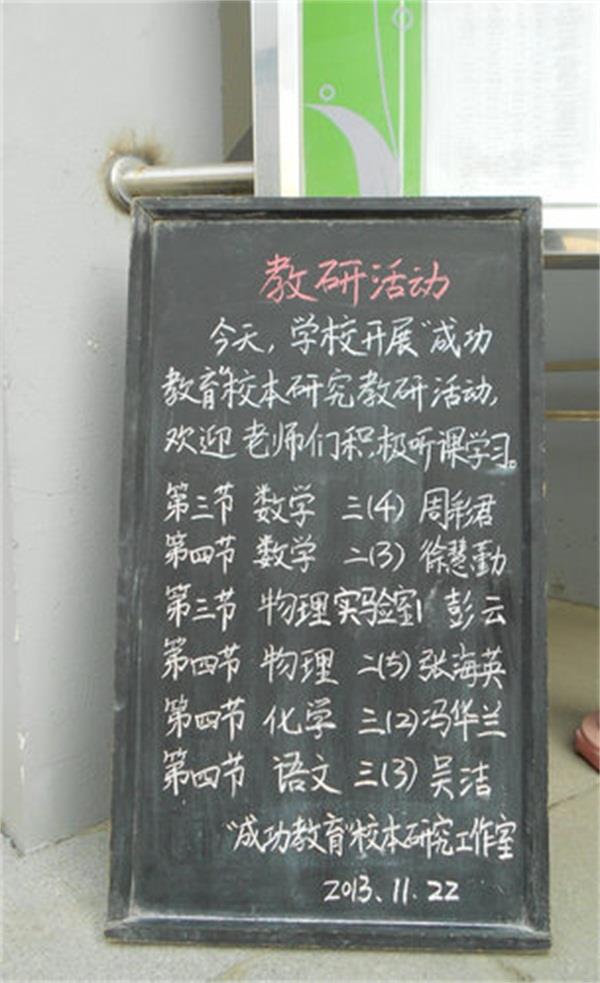 教研活动
今天,学校开展"成功
教育"校本研究教研活动,
欢迎老师们积极听课学习。
第三节 数学 三(4) 周彩君
第四节 数学 二(3) 徐慧勤
第三节 物理实验室1 彭云
第四节 物理 二(5) 张海英
第四节 化学 三(2) 冯华兰
第四节 语文 三(3) 吴洁
"成功教育"校本研究工作室
2013.11.22